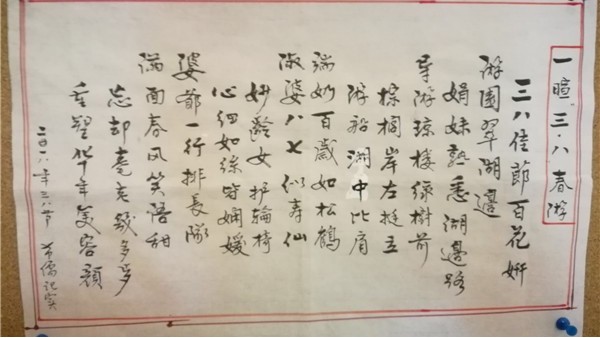 一暄三.八春游
三八佳節百花妍
游園翠湖邊
娟妹熟悉湖邊路
導游琼楼綠樹前
棕榈岸左挺立
游船湖中比肩
瑞奶百歲如松鶴
淑婆八七似寿仙
妙齡女护輪椅
心细如絲皆嫻媛
婆爺一行排長隊
满面春风笑語甜
忘却耄耋几多多
重塑华年美容顔
二〇一八年三八节 記实